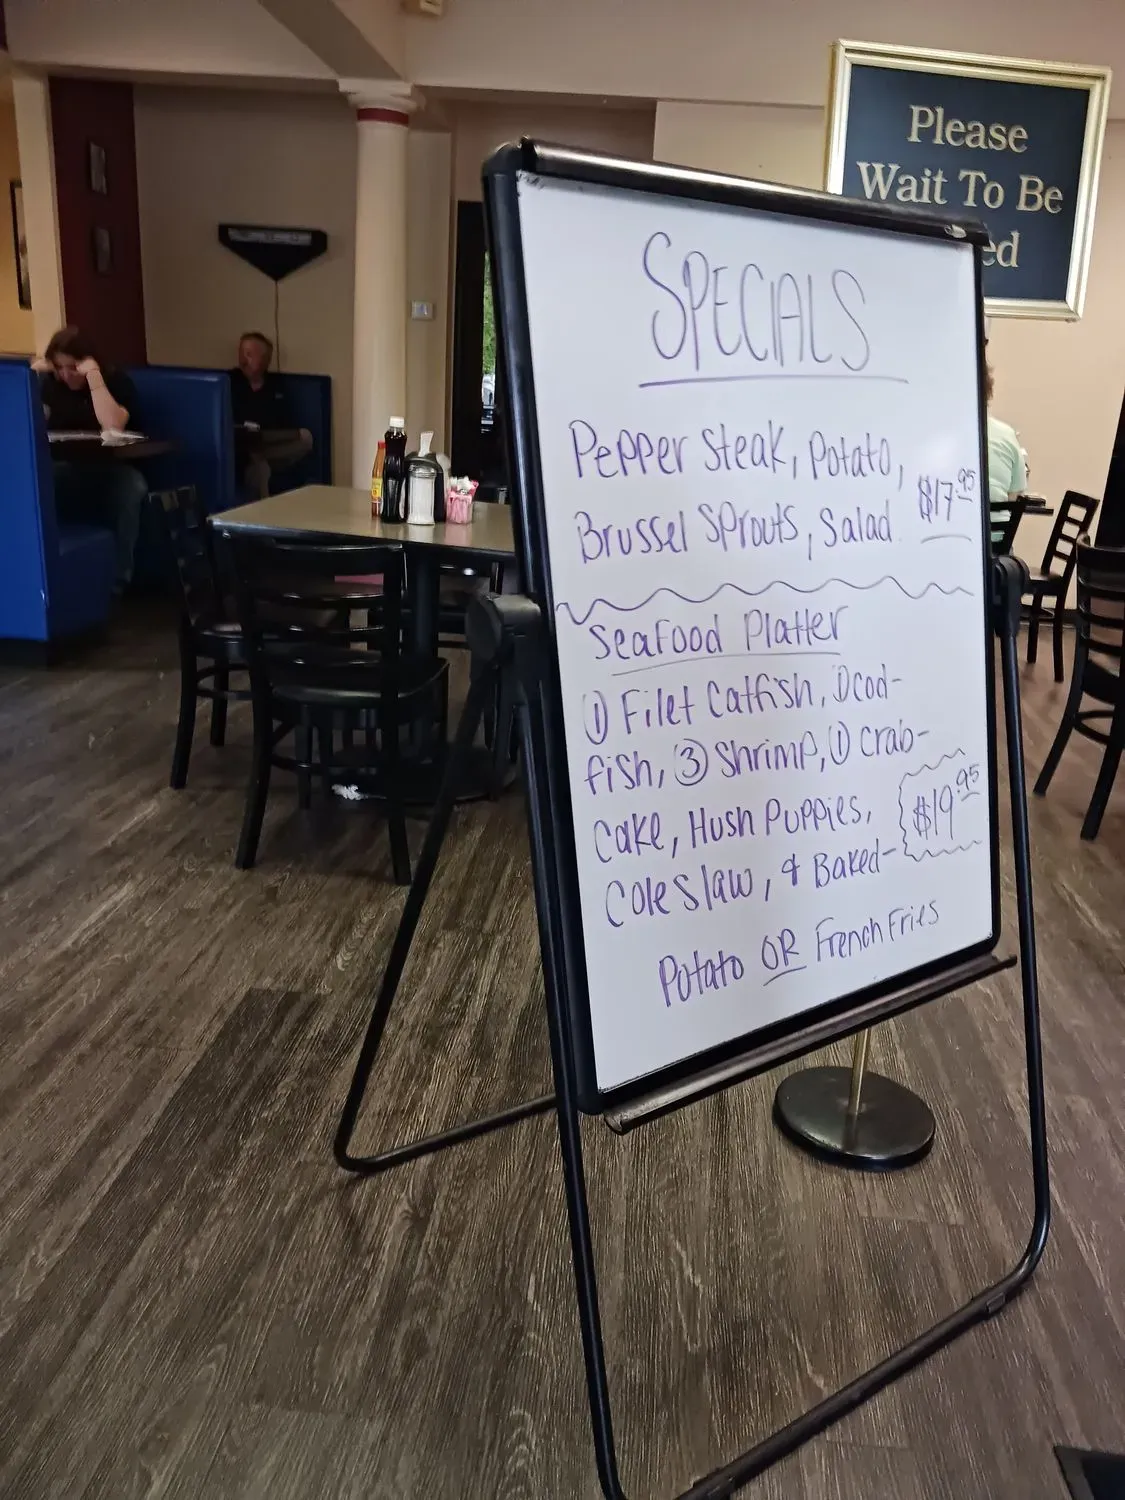 Please
Wait To Be
ed
SPECIALS
Pepper Steak, Potato,
Brussel Sprouts, Salad $17.95
Seafood Platter
① Filet Catfish, ① Cod-
fish, ③ Shrimp, ① Crab-
Cake, Hush Puppies,
Cole Slaw, & Baked- $19.95
Potato OR French Fries